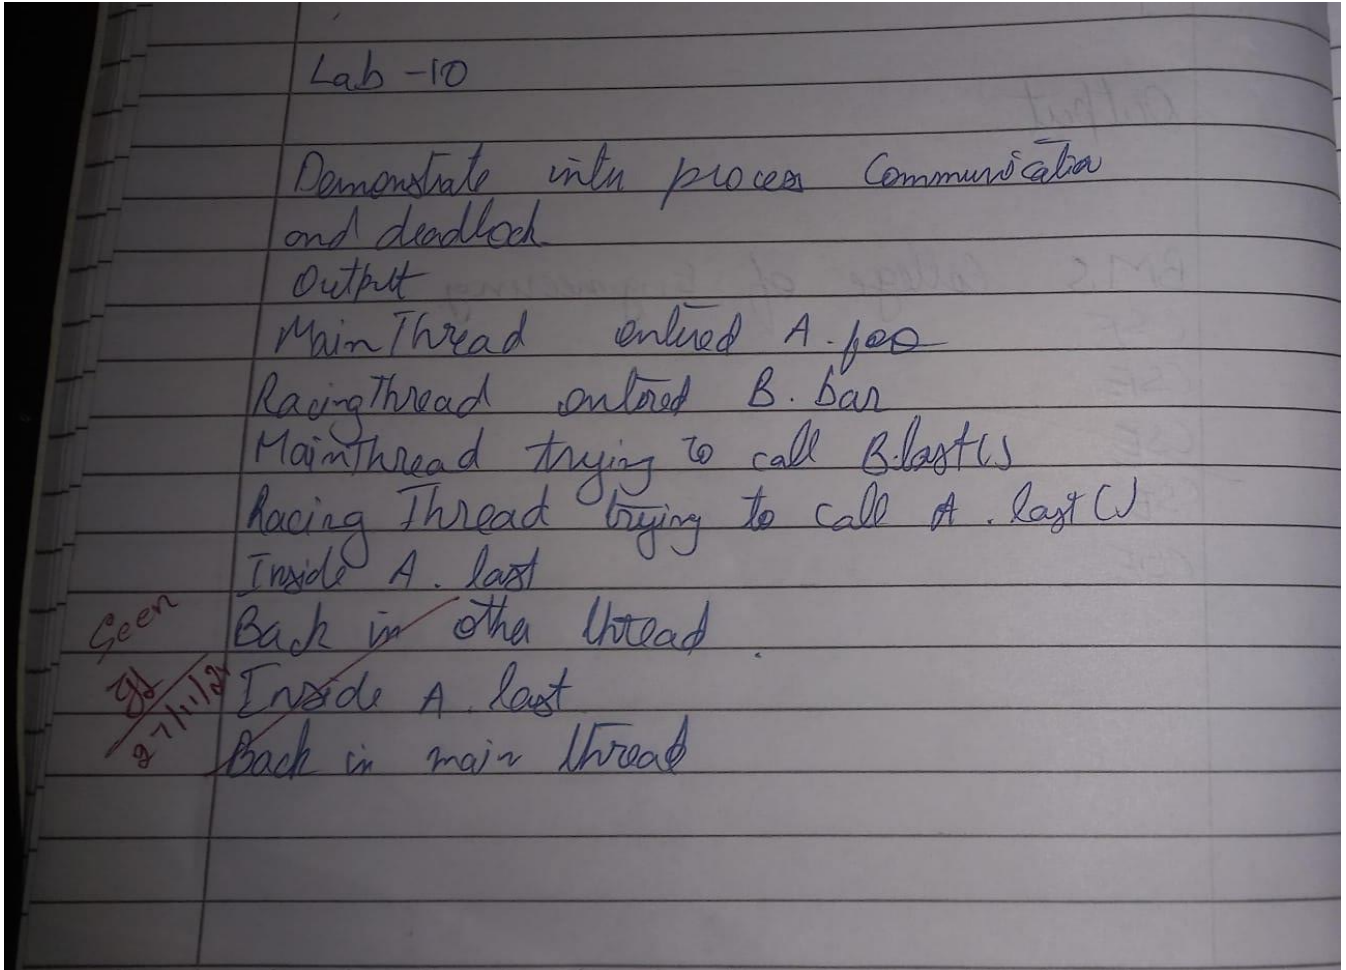 Lab -10
Demonstrate inter process Communication
and deadlock
Output
MainThread entered A.foo
RacingThread entered B.bar
MainThread trying to call B.last()
Racing Thread trying to call A.last()
Inside A.last
Back in other thread
Seen
Inside A.last
27/11/2
Back in main thread